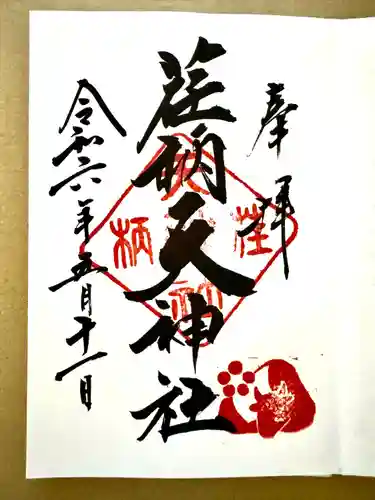 奉拝
荏柄天神社
令和六年五月十一日
荏
柄